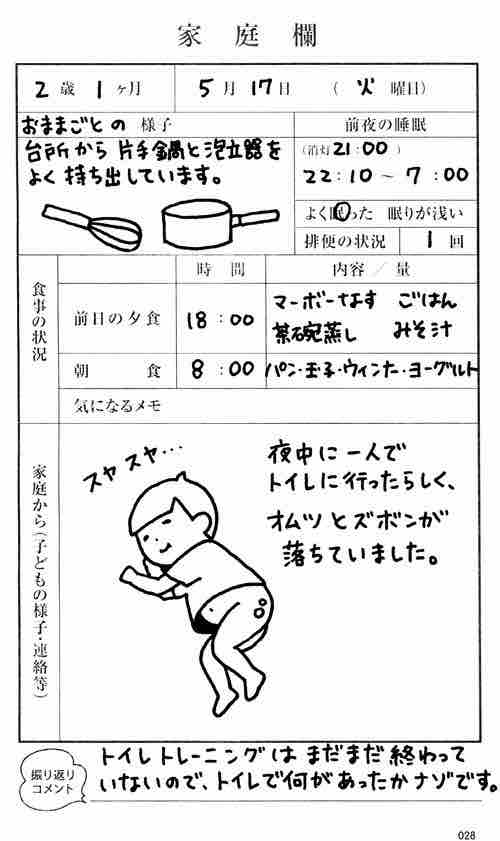 家庭欄
2歳1ヶ月 5月17日 (火曜日)
おままごとの 様子
台所から 片手鍋と泡立器を
よく 持ち出しています。
前夜の睡眠
(消灯21:00)
22:10〜7:00
よく眠った 眠りが浅い
排便の状況 1回
食事の状況
時間 内容/量
前日の夕食 18:00 マーボーなす ごはん
茶碗蒸し みそ汁
朝食 8:00 パン・玉子・ウィンナー・ヨーグルト
気になるメモ
家庭から(子どもの様子・連絡等)
スヤスヤ…
夜中に一人で
トイレに行ったらしく、
オムツとズボンが
落ちていました。
振り返り
コメント
トイレトレーニングは まだまだ 終わって
いないので、トイレで何があったかナゾです。
028